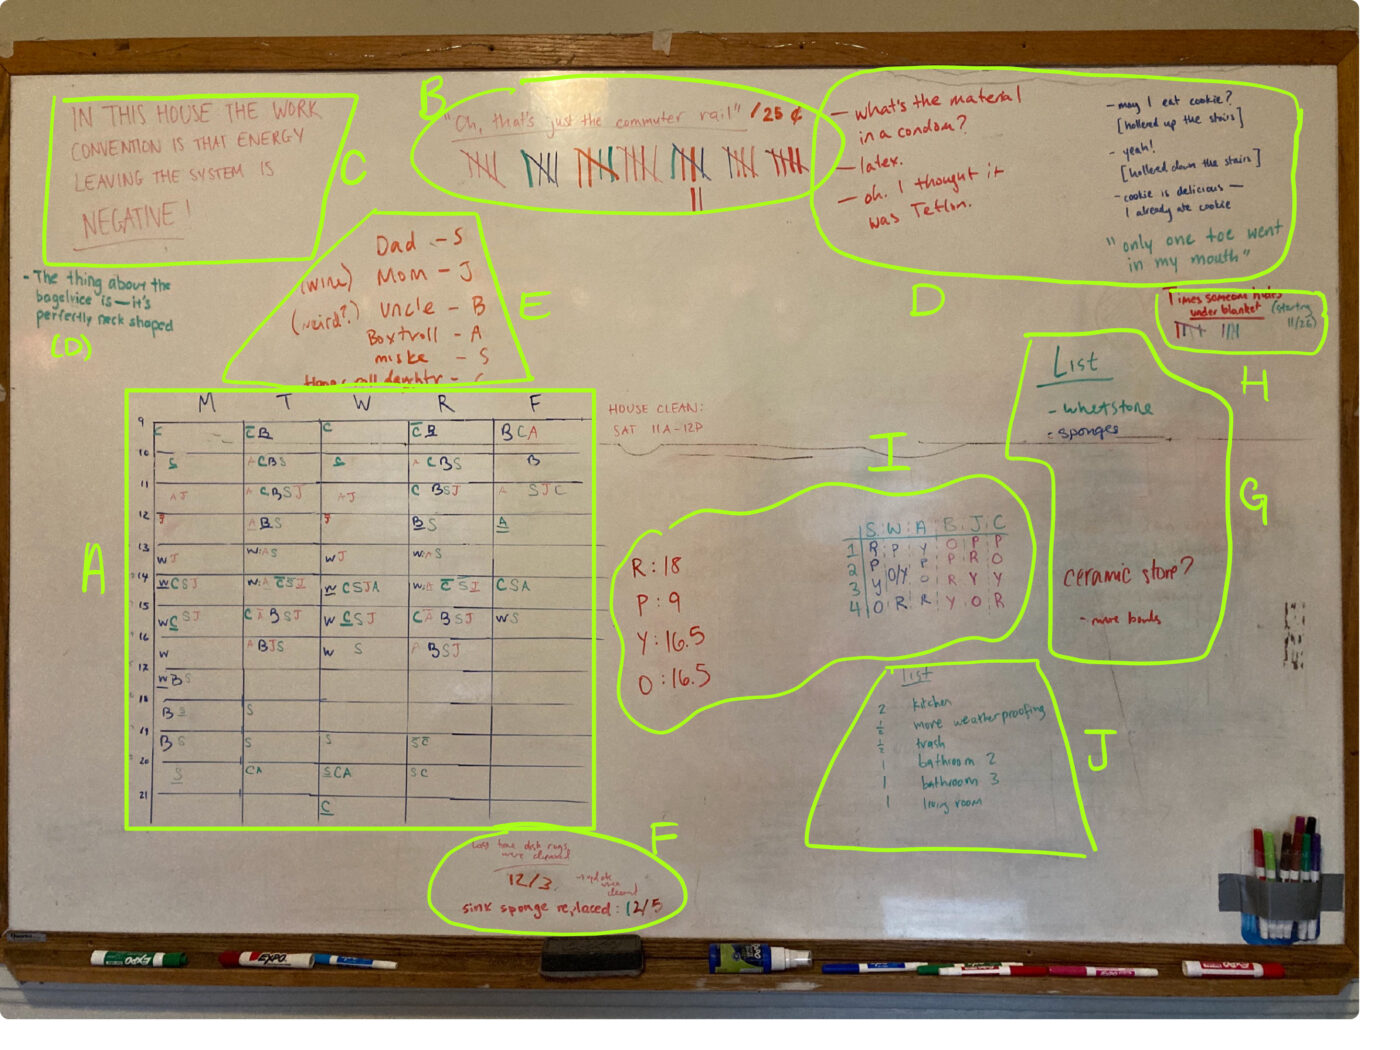 IN THIS HOUSE THE WORK
CONVENTION IS THAT ENERGY
LEAVING THE SYSTEM IS
NEGATIVE!
C
B
"Oh, that's just the commuter rail" /25 ¢
- what's the material
in a condom?
- latex.
- oh. I thought it
was Teflon.
- may I eat cookie?
[hollered up the stairs]
- yeah!
[hollered down the stairs]
- cookie is delicious —
I already ate cookie
"only one toe went
in my mouth"
D
- The thing about the
bagelvice is — it's
perfectly neck shaped
(D)
Dad - S
(wine) Mom - J
(weird?) Uncle - B
Boxtroll - A
miske - S
E
Times someone hides
under blanket (starting
11/26)
H
List
- whetstone
- sponges
ceramic store?
- more bowls
G
HOUSE CLEAN:
SAT 11A-12P
A
M T W R F
9 C C B C C B BCA
10 S A CBS S A CBS B
11 AJ A CBSJ AJ C BSJ A SJC
12 J A BS J BS A
13 WJ W:AS WJ W:AS
14 WCSJ W:A CSJ W CSJA W:A CSJ CSA
15 WC SJ CA BSJ W CSJ CA BSJ WS
16 W A BJS W S A BSJ
17 WBS
18 B S S
19 B S S S SC
20 S CA SCA SC
21 C
I
R:18
P:9
Y:16.5
O:16.5
S W A B J C
1 R P Y O P P
2 P O/Y P P R O
3 Y O R Y Y
4 O R R Y O R
List
2 kitchen
½ more weatherproofing
½ trash
1 bathroom 2
1 bathroom 3
1 living room
J
F
Last time dish rags
were cleaned
12/3
update when cleaned
sink sponge replaced: 12/5
EXPO
EXPO